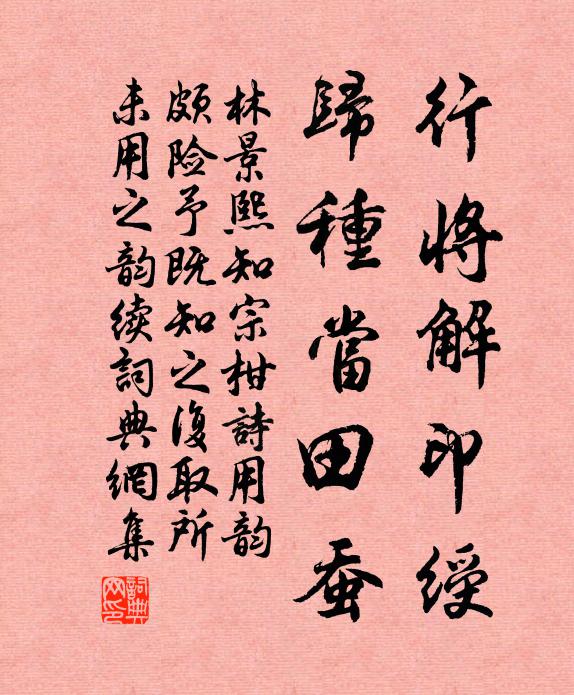 行將解印綬
歸種當田蚕
林景熙知宗柑詩用韵
頗险予既知之復取所
未用之韵续詞典網集
詞典网印